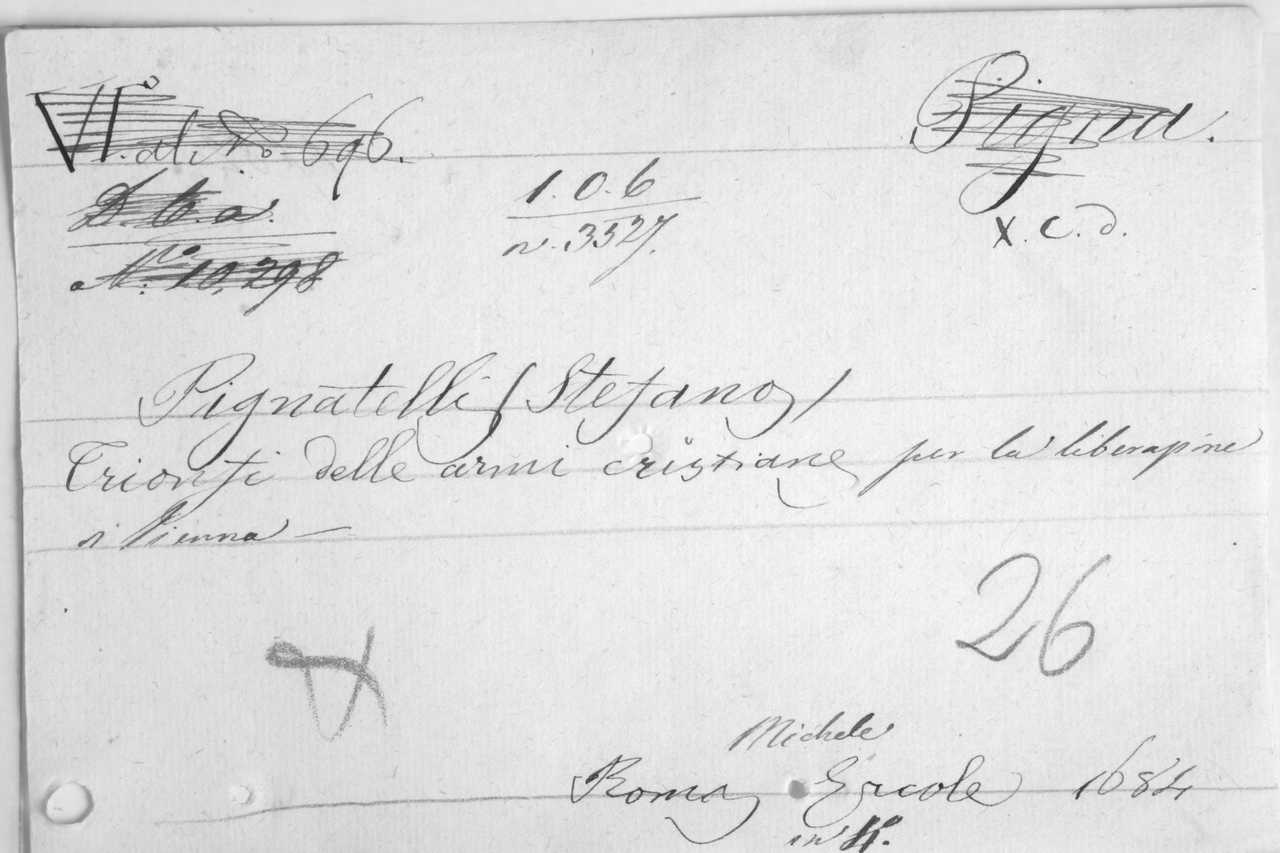 V.º al. Nº 696.
Pigna.
D. b. a.
Nº. 10,298
1. 0. 6
n. 3327.
X. C. d.
Pignatelli (Stefano)
Trionfi delle armi cristiane per la liberazine
di Vienna —
26
Michele
Roma Ercole 1684
in 4º.